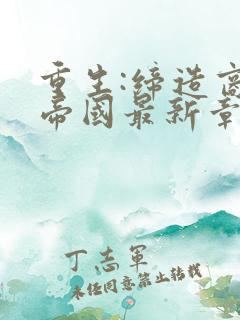 重生:締造商
帝國最新章
丁志軍
未经同意禁止转载